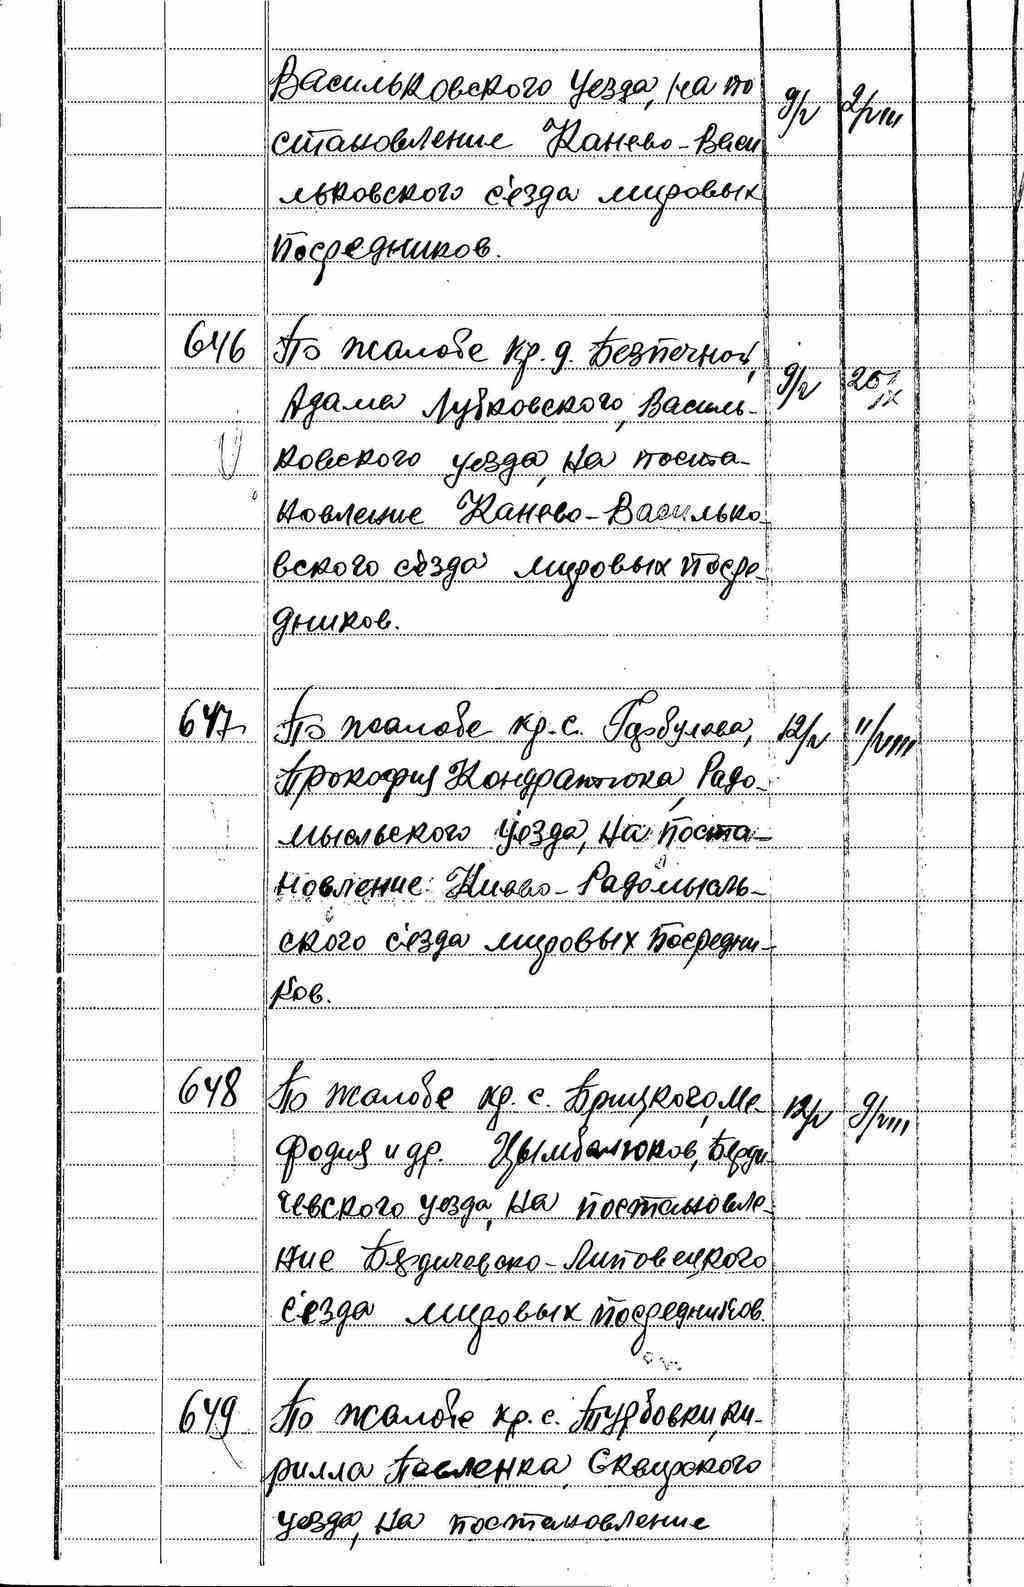 Васильковского уезда, на по 9/V 2/VIII
становление Канево-Васи
льковского с'езда мировых
посредников.
646 По жалобе кр. д. Безпечной, 9/V 25/IX
Адама Лубковского, Василь-
ковского уезда, на поста-
новление Канево-Василько-
вского с'езда мировых посре-
дников.
647 По жалобе кр. с. 12/V 11/VIII
Прокофия Кондратюка, Радо-
мысльского уезда, на поста-
новление Киево-Радомысль-
ского с'езда мировых посредни-
ков.
648 По жалобе кр. с. Брицкого, Ме- 12/V 9/VIII
фодия и др. Цымбалюков, Берди
чевского уезда, на постановле-
ние Бердичевско-Липовецкого
с'езда мировых посредников.
649 По жалобе кр. с. Турбовки, Ки-
рилла Павленка, Сквирского
уезда, на постановление